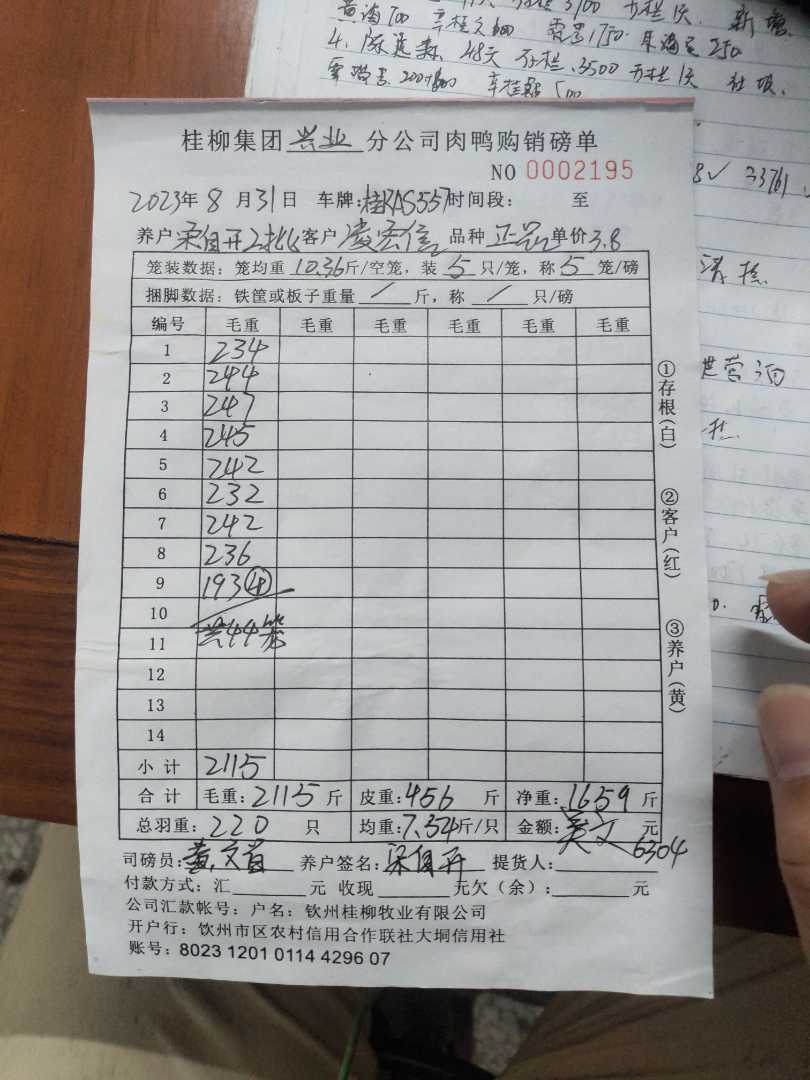 黄海700
4、陈延森 48天 存栏3500 开栏1天
桂柳集团兴业分公司肉鸭购销磅单
NO 0002195
2023年8月31日 车牌:桂KAS557时间段: 至
养户梁自开2批客户凌宏信品种正品单价3.8
笼装数据：笼均重10.36斤/空笼，装5只/笼，称5笼/磅
捆脚数据：铁筐或板子重量/斤，称/只/磅
编号 毛重 毛重 毛重 毛重 毛重 毛重
1 234
2 244
3 247
4 245
5 242
6 232
7 242
8 236
9 193④
10
11 共44笼
12
13
14
小计 2115
合计 毛重:2115斤 皮重:456斤 净重:1659斤
总羽重:220只 均重:7.54斤/只 金额: 元
6304
司磅员: 养户签名:梁自开 提货人:
付款方式：汇 元 收现 元欠（余）： 元
公司汇款帐号：户名：钦州桂柳牧业有限公司
开户行：钦州市区农村信用合作联社大垌信用社
账号：8023 1201 0114 4296 07
①存根(白)
②客户(红)
③养户(黄)
33761